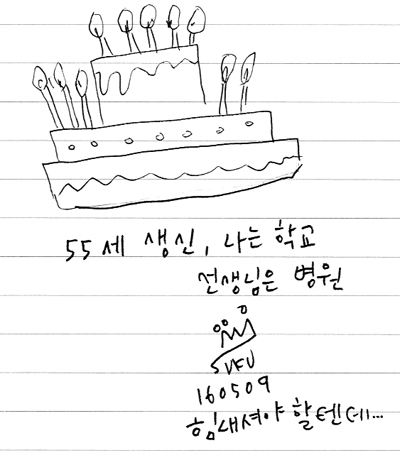 55세 생신, 나는 학교
선생님은 병원
SVFU
160509
힘내셔야 할텐데...